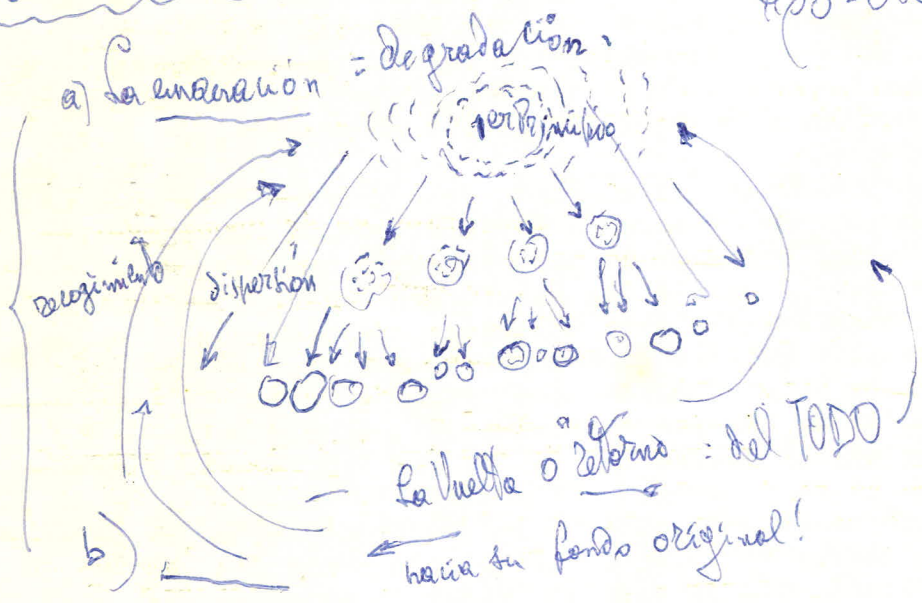 a) La emanación = degradación.
ser Primitivo
recogimiento
dispersión
— La Vuelta o "retorno" : del TODO
b)
hacia su fondo original!